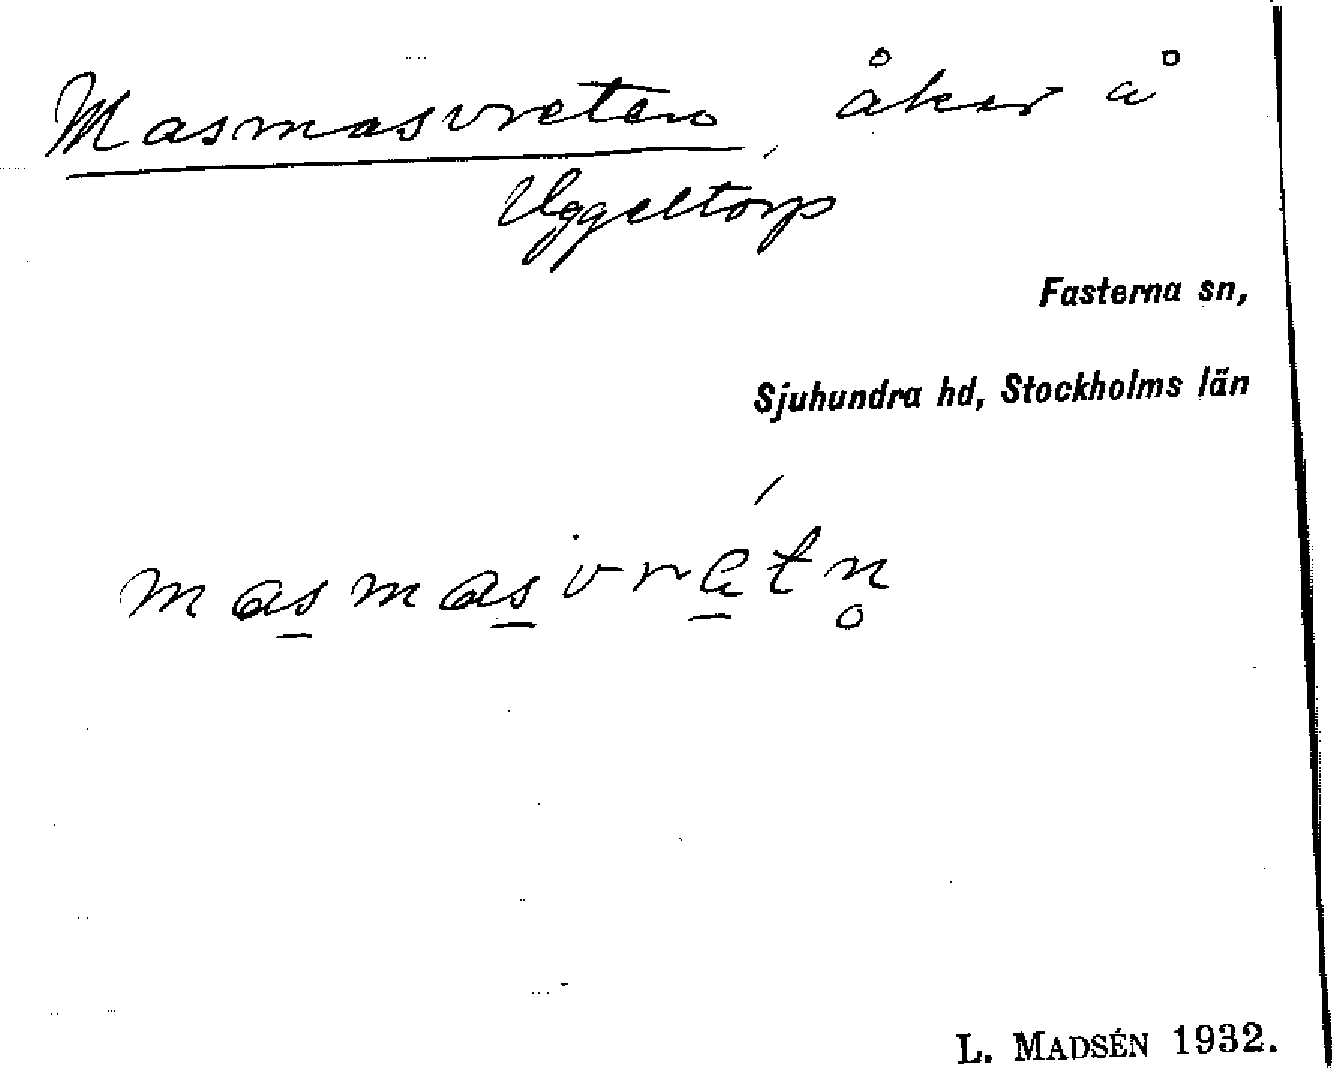 Masmasvreten, åker å
Uggeltorp
Fasterna sn,
Sjuhundra hd, Stockholms län
masmasvrétn̥
L. MADSÉN 1932.